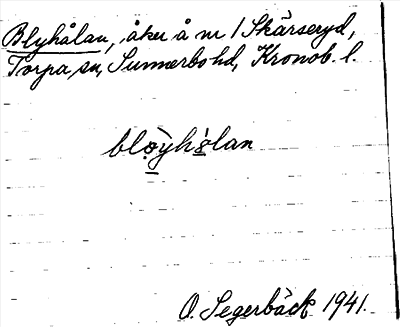 Blyhålan, åker å nr 1 Skärseryd,
Torpa sn, Sunnerbo hd, Kronob. l.
blò̤yhålan
O. Segerbäck 1941.